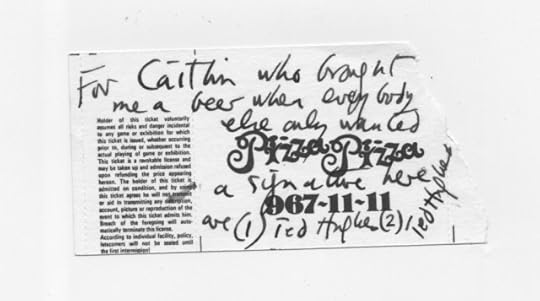 For Caitlin who brought
me a beer when everybody
else only wanted
a signature here
are (1) Ted Hughes (2) Ted Hughes
Pizza Pizza
967-11-11
Holder of this ticket voluntarily
assumes all risks and danger incidental
to any game or exhibition for which
this ticket is issued, whether occurring
prior to, during or subsequent to the
actual playing of game or exhibition.
This ticket is a revokable license and
may be taken up and admission refused
upon refunding the price appearing
hereon. The holder of this ticket is
admitted on condition, and by using
this ticket agrees he will not transmit
or aid in transmitting any description,
account, picture or reproduction of the
event to which this ticket admits him.
Breach of the foregoing will auto-
matically terminate this license.
According to individual facility, policy,
latecomers will not be seated until
the first